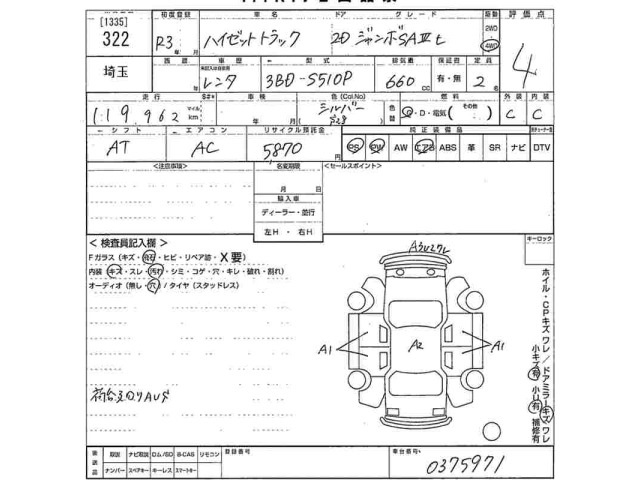 [1335]
322
埼玉
初度登録 車名 ドア グレード 駆動 評価点
R3 ハイゼットトラック 2D ジャンボSAⅢt 2WD 4WD 4
車歴 型式 排気量 保証書 定員
レンタ 3BD-S510P 660 cc 有・無 2 名
走行 S#* 車検 色(Col.No) 色替 燃料 外装 内装
119,962 マイル km 年 月 シルバー G・D・電気(その他) C C
シフト エアコン リサイクル預託金 純正装備品
AT AC 5870円 PS PW AW エアB ABS 革 SR ナビ DTV
<注意事項> 名変期限 <セールスポイント>
月 日
輸入車
ディーラー・並行
左H ・ 右H
キーロック
<検査員記入欄>
Fガラス(キズ・飛石・ヒビ・リペア跡・X要)
内装(キズ・スレ・汚れ・シミ・コゲ・穴・キレ・破れ・割れ)
オーディオ(無し・穴)/タイヤ(スタッドレス)
A3U2ワレ
A1 A2 A1
ホイル・CPキズワレ/ドアミラーキズワレ
小キズ有 小U有 補修有
後送品 取説 ナビ取説 D.M./SD B-CAS リモコン
ナンバー スペアキー キーレス スマートキー
登録番号 車台番号
0375971